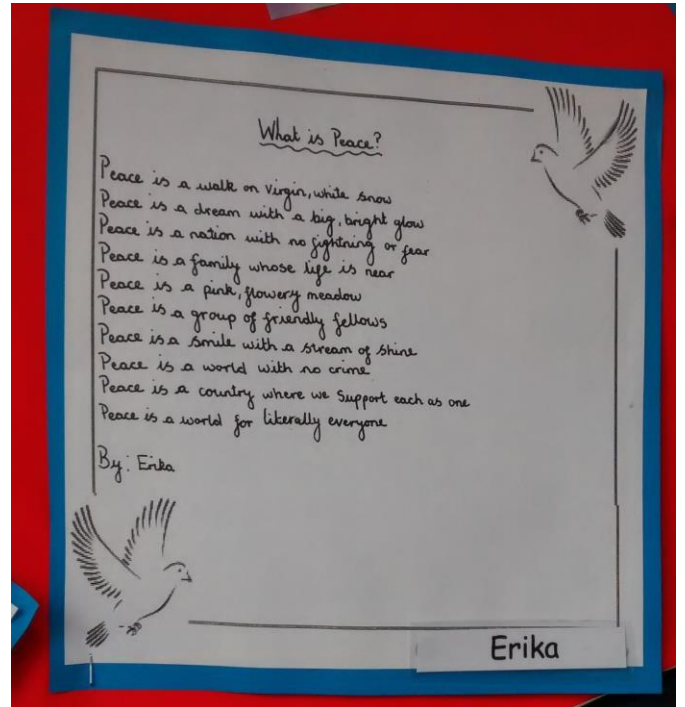 What is Peace?
Peace is a walk on virgin, white snow
Peace is a dream with a big, bright glow
Peace is a nation with no fightning or fear
Peace is a family whose life is near
Peace is a pink, flowery meadow
Peace is a group of friendly fellows
Peace is a smile with a stream of shine
Peace is a world with no crime
Peace is a country where we Support each as one
Peace is a world for literally everyone
By: Erika
Erika